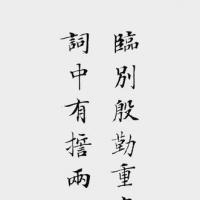 臨別殷勤重
詞中有誓兩